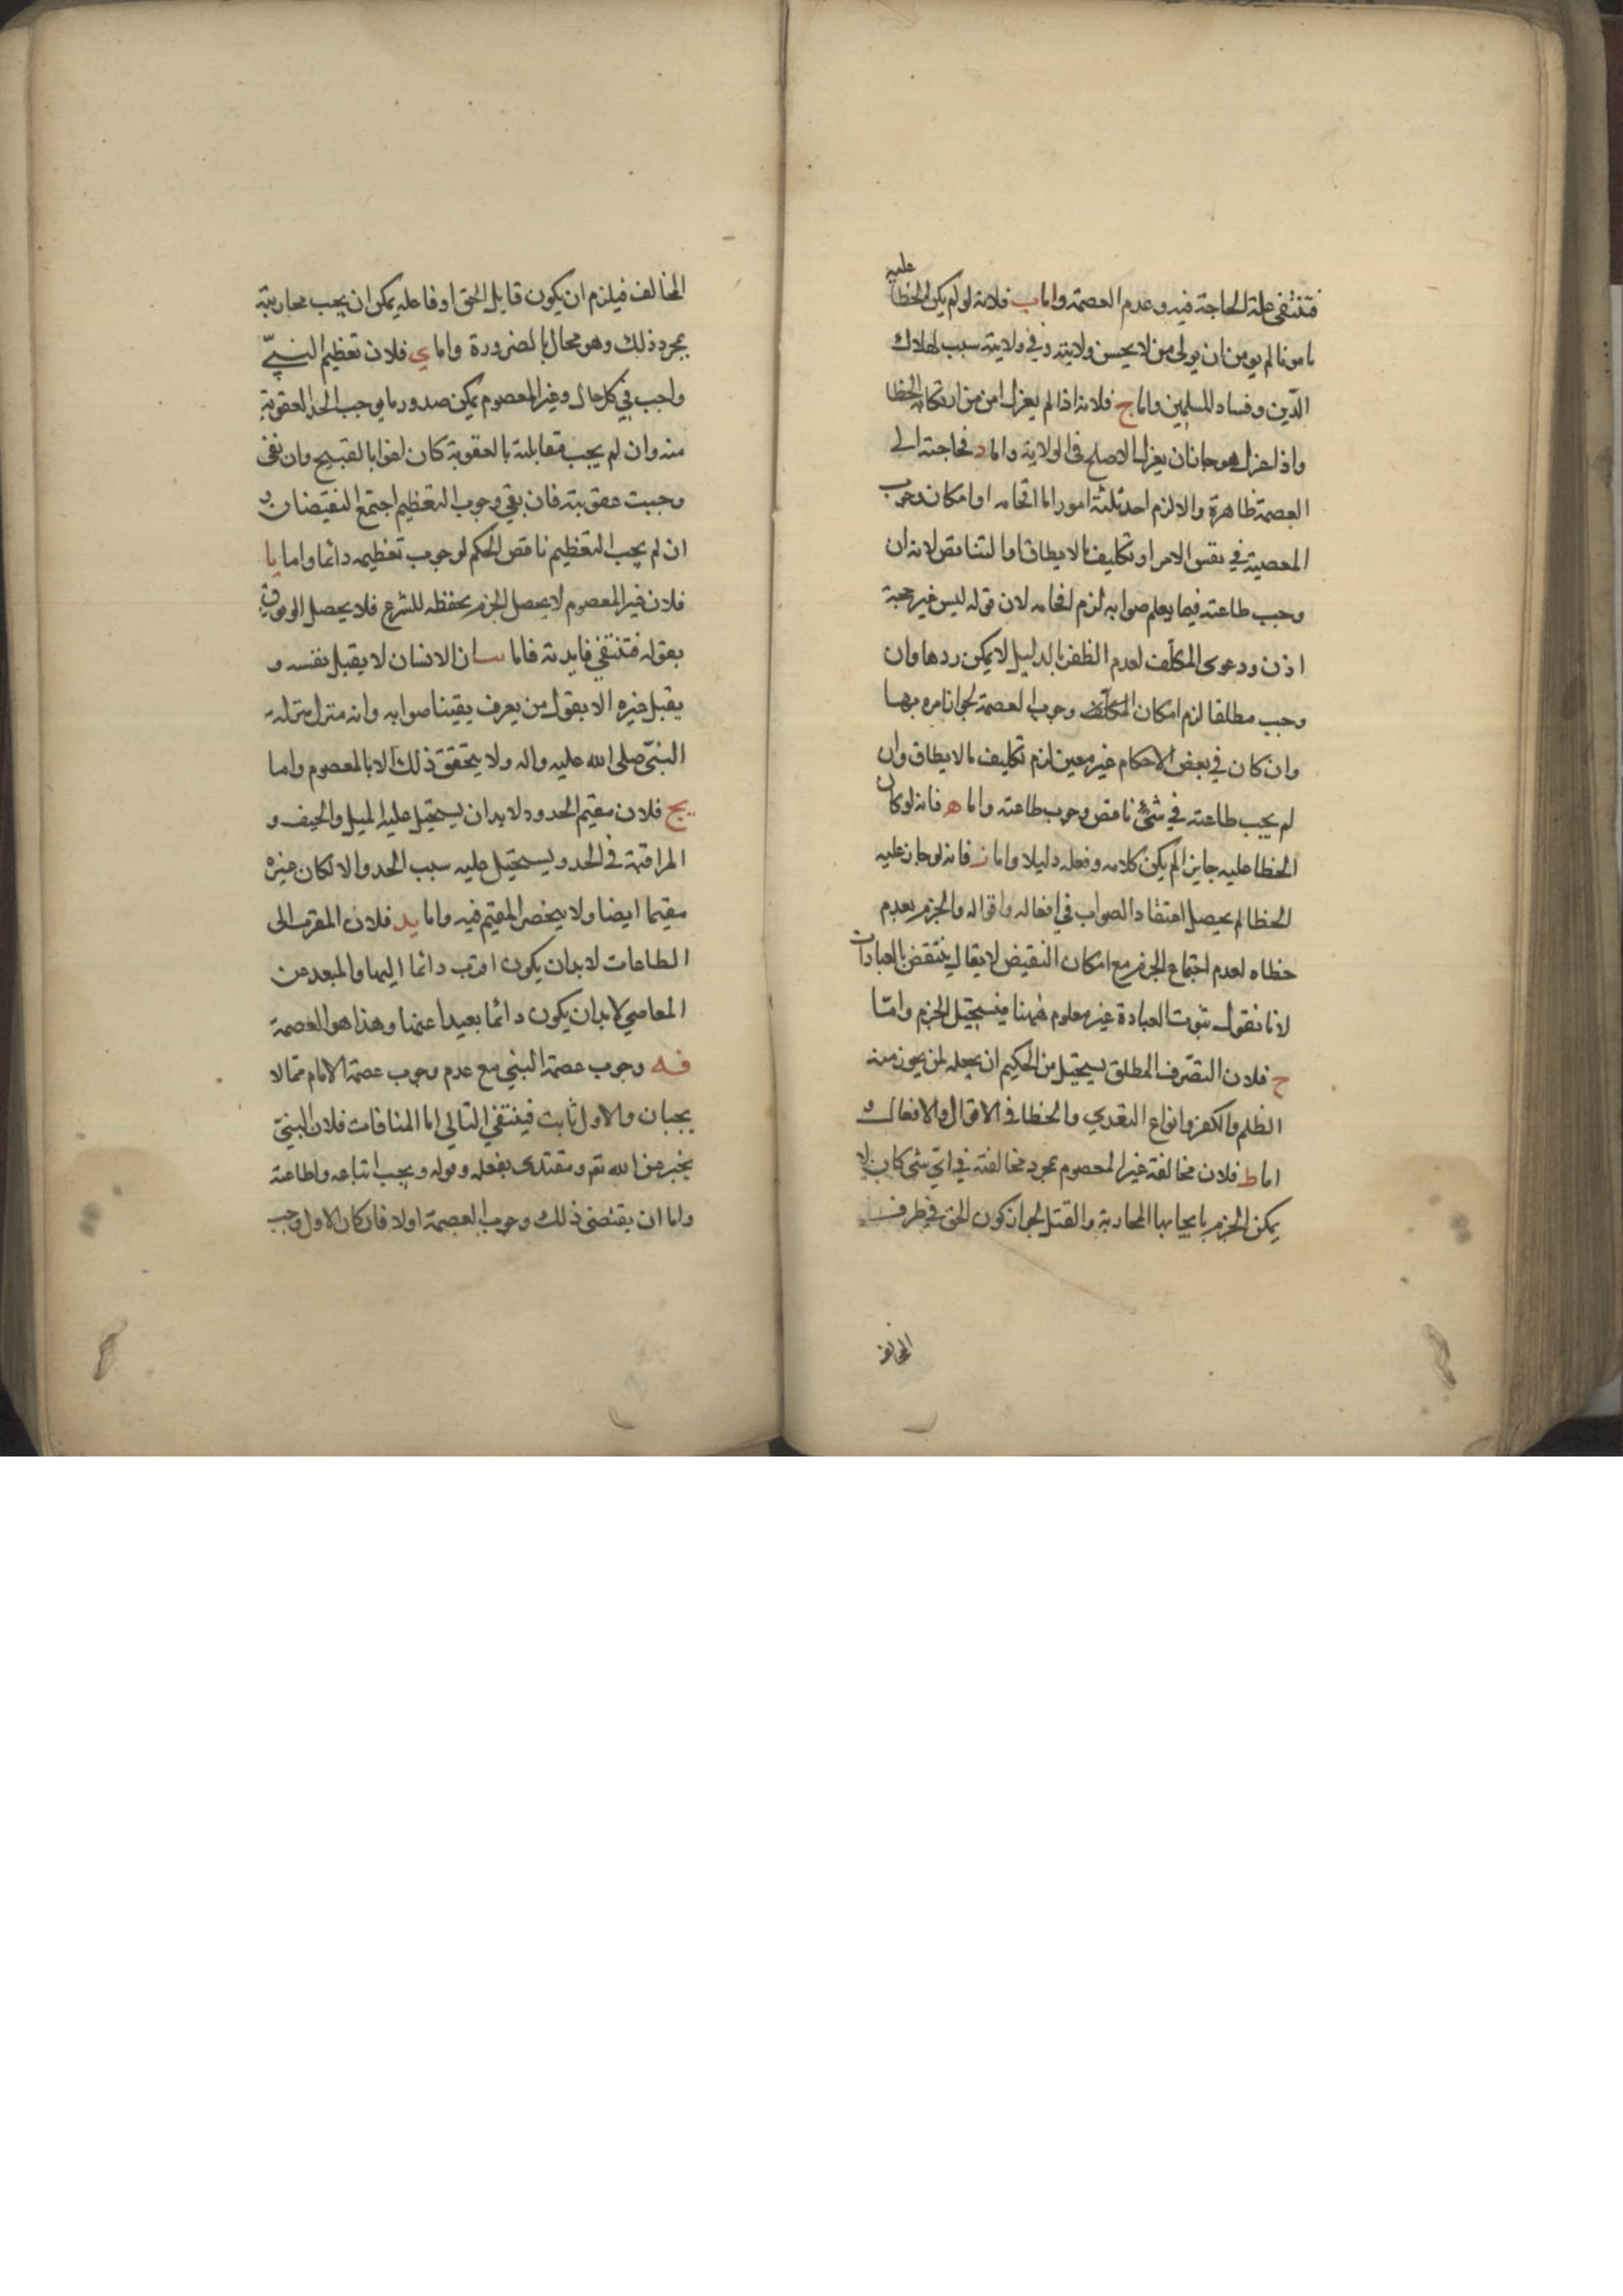 فتنتفى علة الحاجة فيه وعدم العصمة واما ب فلانه لو لم يكن الخطا عليه
مامونا لم يومن ان يولى من لا يحسن ولايته وفي ولايته سبب لهلاك
الدّين وفساد للمسلمين واما ج فلانه اذا لم يعزل امن من ارتكابه الخطا
واذا عزل هو جاز ان يعزل الاصلح فى الولاية واما د فحاجته الى
العصمة ظاهرة والا لزم احد ثلثة امور اما افحامه او امكان وجوب
المعصية في نفس الامر او تكليف ما لا يطاق او التناقض لانه ان
وجب طاعته فيما يعلم صوابه لزم افحامه لان قوله ليس غير حجة
اذن ودعوى المكلّف لعدم الظفر بالدليل لا يمكن ردها وان
وجب مطلقا لزم امكان وجوب لعصمة لجواز امره بها
وان كان في بعض الاحكام غير معين لزم تكليف ما لا يطاق وان
لم يجب طاعته في شئ ناقض وجوب طاعته واما ه فانه لو كان
الخطا عليه جايزا لم يكن كلامه وفعله دليلا واما ز فانه لو جاز عليه
الخطا لم يحصل اعتقاد الصواب في افعاله واقواله والجزم بعدم
خطاه لعدم اجتماع الجزم مع امكان النقيض لا يقال ينتقض بالعبادات
لانا نقول ثبوت العبادة غير معلوم فهنا فيستحيل الجزم وامّا
ح فلان التصّرف المطلق يستحيل من الحكيم ان يجعله لمن يجوز منه
الظلم والكفر وانواع التعدي والخطا فى الاقوال والافعال و
اما ط فلان مخالفة غير المعصوم بمجرد مخالفته في ايّ شئ كان لا
يمكن الجزم بايجابها المحاربة والقتل لجواز كون الحق في طرف
المخالف
المخالف فيلزم ان يكون قايل الحق او فاعله يمكن ان يجب محاربته
بمجرد ذلك وهو محال بالضرورة واما ي فلان تعظيم النبيّ
واجب في كل حال وغير المعصوم يمكن صدور ما يوجب الحد العقوبة
منه وان لم يجب مقابلته بالعقوبة كان اغوا بالقبيح وان نفى
وجبت عقوبته فان بقي وجوب التعظيم اجتمع النقيضان و
ان لم يجب التعظيم ناقض الحكم لوجوب تعظيمه دائما واما يا
فلان غير المعصوم لا يحصل الجزم بحفظه للشرع فلا يحصل الوثوق
بقوله فتنتفي فايدته فاما يب ان الانسان لا يقبل نفسه و
يقبل غيره الا بقول من يعرف يقينا صوابه وانه منزل منزلة
النبيّ صلى الله عليه واله ولا يتحقق ذلك الا بالمعصوم واما
يج فلان مقيم الحدود لا بد ان يستحيل عليه الميل والحيف و
المراقبة فى الحد ويستحيل عليه سبب الحد والا لكان غيره
مقيما ايضا ولا ينحصر المقيم فيه واما يد فلان المقرب الى
الطاعات لا بد ان يكون اقرب دائما اليها والمبعد عن
المعاصي لا بد ان يكون دائما بعيدا عنها وهذا هو العصمة
فه وجوب عصمة النبي مع عدم وجوب عصمة الامام مما لا
يجبان والاول ثابت فينتفي التالي اما المنافات فلان النبيّ
يخبر عن الله تع ومقتدى بفعله وقوله ويجب اتباعه واطاعته
واما ان يقتضى ذلك وجوب العصمة اولا فان كان الاول وجب